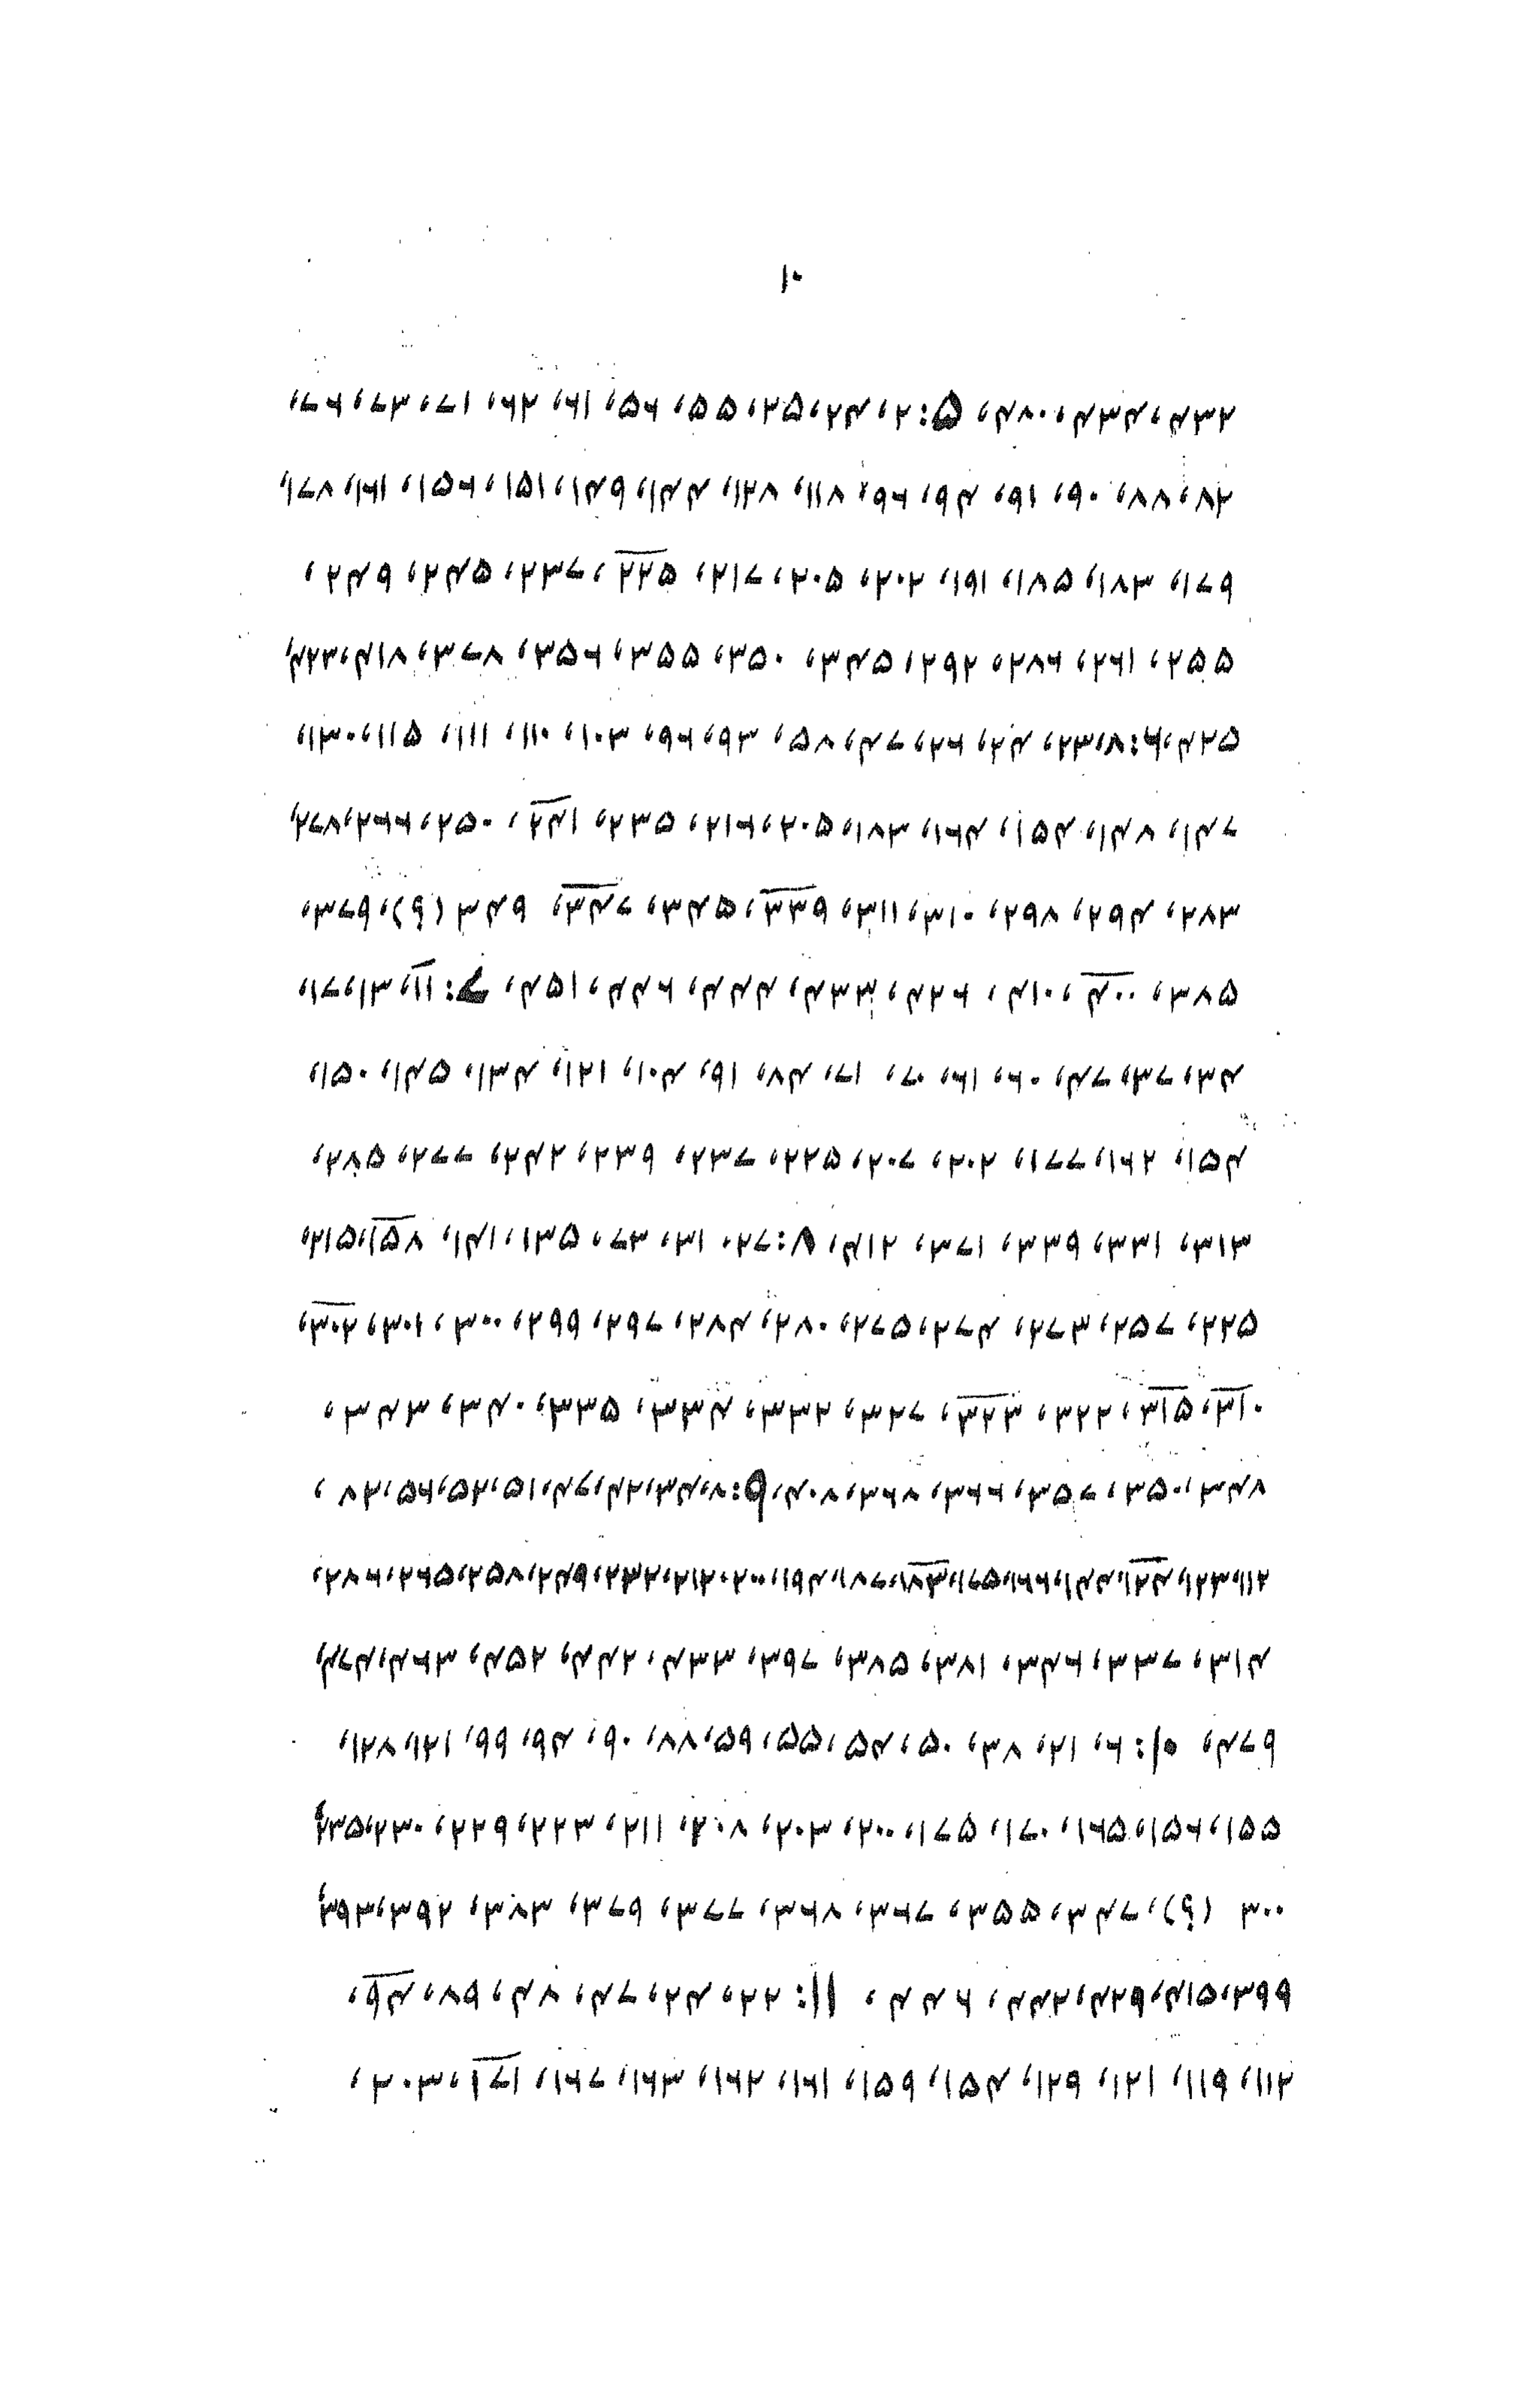 ۱۰
۴۳۲، ۴۳۴، ۴۸۰، ۵: ۲، ۲۴، ۲۵، ۵۵، ۵۶، ۶۱، ۶۲، ۷۱، ۷۳، ۷۶،
۸۲، ۸۸، ۹۰، ۹۱، ۹۴، ۹۶، ۱۱۸، ۱۲۸، ۱۴۴، ۱۴۹، ۱۵۱، ۱۵۶، ۱۶۱، ۱۷۸،
۱۷۹، ۱۸۳، ۱۸۵، ۱۹۱، ۲۰۲، ۲۰۵، ۲۱۷، ۲۲۵، ۲۳۷، ۲۴۵، ۲۴۹،
۲۵۵، ۲۶۱، ۲۸۶، ۲۹۲، ۳۴۵، ۳۵۰، ۳۵۵، ۳۵۶، ۳۷۸، ۴۱۸، ۴۲۳،
۴۲۵، ۶: ۸، ۲۳، ۲۴، ۲۶، ۴۷، ۵۸، ۹۳، ۹۶، ۱۰۳، ۱۱۰، ۱۱۱، ۱۱۵، ۱۳۰،
۱۴۷، ۱۴۸، ۱۵۴، ۱۶۴، ۱۸۳، ۲۰۵، ۲۱۶، ۲۳۵، ۲۴۱، ۲۵۰، ۲۶۶، ۲۷۸،
۲۸۳، ۲۹۴، ۲۹۸، ۳۱۰، ۳۱۱، ۳۳۹، ۳۴۵، ۳۴۷، ۳۴۹ ۳۷۹،
۳۸۵، ۴۰۰، ۴۱۰، ۴۲۶، ۴۳۳، ۴۴۴، ۴۴۶، ۴۵۱، ۷: ۱۱، ۱۳، ۱۷،
۳۴، ۳۷، ۴۷، ۶۰، ۶۱، ۷۰، ۷۱، ۸۴، ۹۱، ۱۰۴، ۱۲۱، ۱۳۴، ۱۴۵، ۱۵۰،
۱۵۴، ۱۶۲، ۱۷۷، ۲۰۲، ۲۰۷، ۲۲۵، ۲۳۷، ۲۳۹، ۲۴۲، ۲۷۷، ۲۸۵،
۳۱۳، ۳۳۱، ۳۳۹، ۳۷۱، ۴۱۲، ۸: ۲۷، ۳۱، ۷۳، ۱۳۵، ۱۴۱، ۱۵۸، ۲۱۵،
۲۲۵، ۲۵۷، ۲۷۳، ۲۷۴، ۲۷۵، ۲۸۰، ۲۸۴، ۲۹۷، ۲۹۹، ۳۰۰، ۳۰۱، ۳۰۲،
۳۱۰، ۳۱۵، ۳۲۲، ۳۲۳، ۳۲۷، ۳۳۲، ۳۳۴، ۳۳۵، ۳۴۰، ۳۴۳،
۳۴۸، ۳۵۰، ۳۵۷، ۳۶۶، ۳۶۸، ۴۰۸، ۹: ۸، ۳۴، ۴۲، ۴۷، ۵۱، ۵۲، ۵۶، ۸۲،
۱۱۲، ۱۲۳، ۱۲۴، ۱۴۴، ۱۶۶، ۱۷۵، ۱۸۳، ۱۸۷، ۱۹۴، ۲۰۰، ۲۱۲، ۲۳۲، ۲۴۹، ۲۵۸، ۲۶۵، ۲۸۶،
۳۱۴، ۳۳۷، ۳۴۶، ۳۸۱، ۳۸۵، ۳۹۷، ۴۳۳، ۴۴۲، ۴۵۲، ۴۶۳، ۴۷۴،
۴۷۹، ۱۰: ۶، ۲۱، ۳۸، ۵۰، ۵۴، ۵۵، ۵۹، ۸۸، ۹۰، ۹۴، ۹۹، ۱۲۱، ۱۲۸،
۱۵۵، ۱۵۶، ۱۶۵، ۱۷۰، ۱۷۵، ۲۰۰، ۲۰۳، ۲۰۸، ۲۱۱، ۲۲۳، ۲۲۹، ۲۳۰، ۲۳۵،
۳۰۰ ۳۴۷، ۳۵۵، ۳۶۷، ۳۶۸، ۳۷۷، ۳۷۹، ۳۸۳، ۳۹۲، ۳۹۳،
۳۹۹، ۴۱۵، ۴۲۹، ۴۴۲، ۴۴۶، ۱۱: ۲۲، ۲۴، ۴۷، ۴۸، ۸۹، ۹۴،
۱۱۲، ۱۱۹، ۱۲۱، ۱۲۹، ۱۵۴، ۱۵۹، ۱۶۱، ۱۶۲، ۱۶۳، ۱۶۷، ۱۷۱، ۲۰۳،